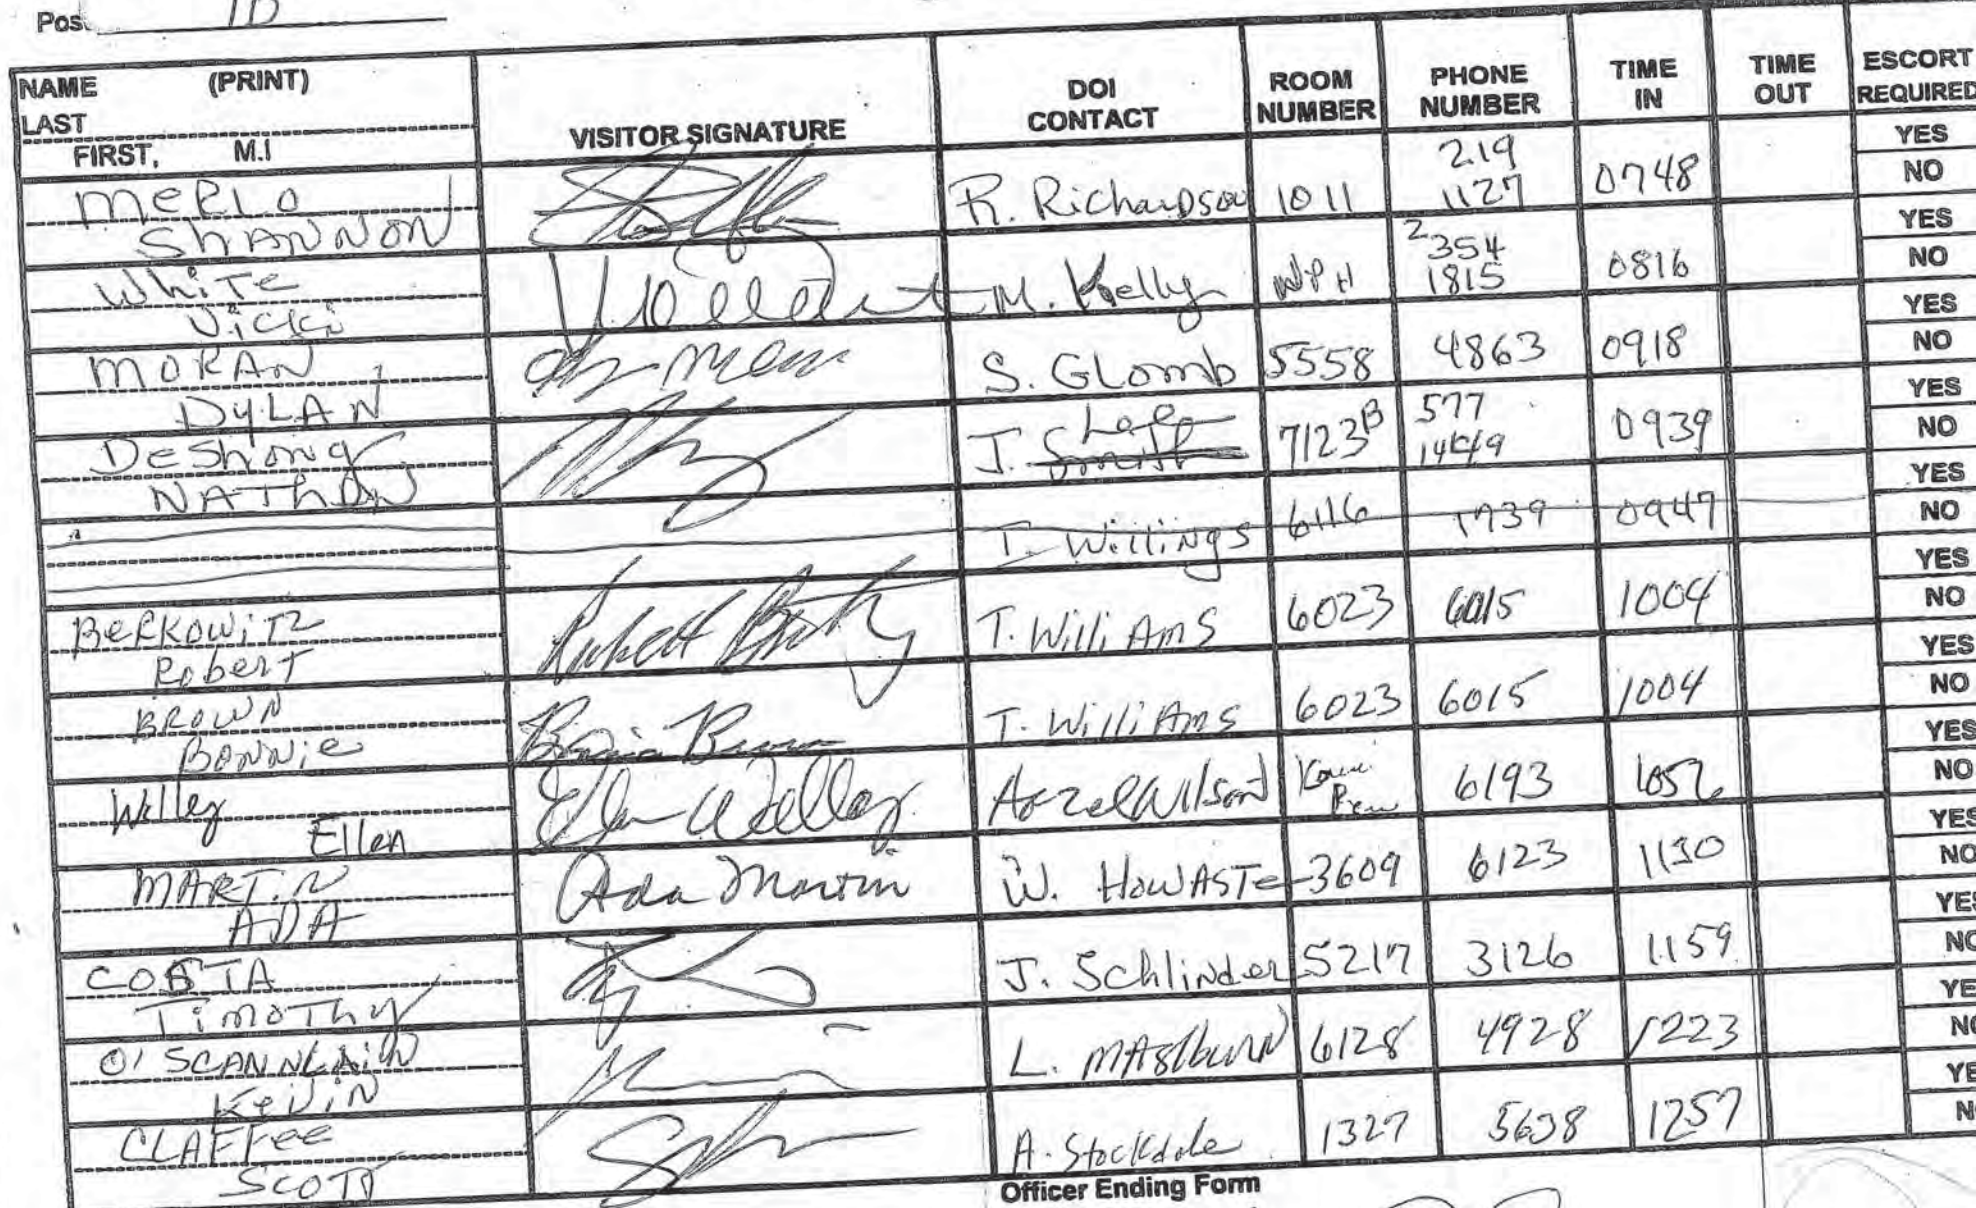 Pos 1D
NAME (PRINT)
LAST
FIRST, M.I
VISITOR SIGNATURE
DOI CONTACT
ROOM NUMBER
PHONE NUMBER
TIME IN
TIME OUT
ESCORT REQUIRED
MERLO SHANNON R. Richardson 1011 219 1127 0748 YES NO
White Vicki M. Kelly 2354 1815 0816 YES NO
MORAN DYLAN S. GLomb 5558 4863 0918 YES NO
DeShong NATHAN J. Smith 7123B 577 0939 YES NO
T. Willings 6116 1739 0947 YES NO
BERKOWITZ Robert T. WilliAmS 6023 6015 1004 YES NO
BROWN BONNie T. WilliAmS 6023 6015 1004 YES NO
Willey Ellen Ellen Willey 6193 YES NO
MARTIN ADA Ada Martin W. HowASTe 3609 6123 1130 YES NO
COSTA TimoThy J. Schlinder 5217 3126 1159 YES NO
O'SCANNLAIN KeViN L. 6128 4928 1223 YES NO
SCOTT A. Stockdale 1327 5638 1257 YES NO
Officer Ending Form